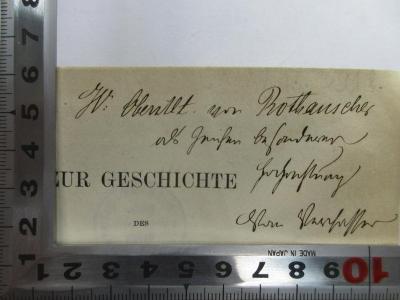 Hr: Obstlt. von Rothauscher
als Zeichen besonderer
Hochachtung
ZUR GESCHICHTE
vom Verfasser
DES
MADE IN JAPAN
1 2 3 4 5 6 7 8
10 9 8 7 6 5 4 3 2 1